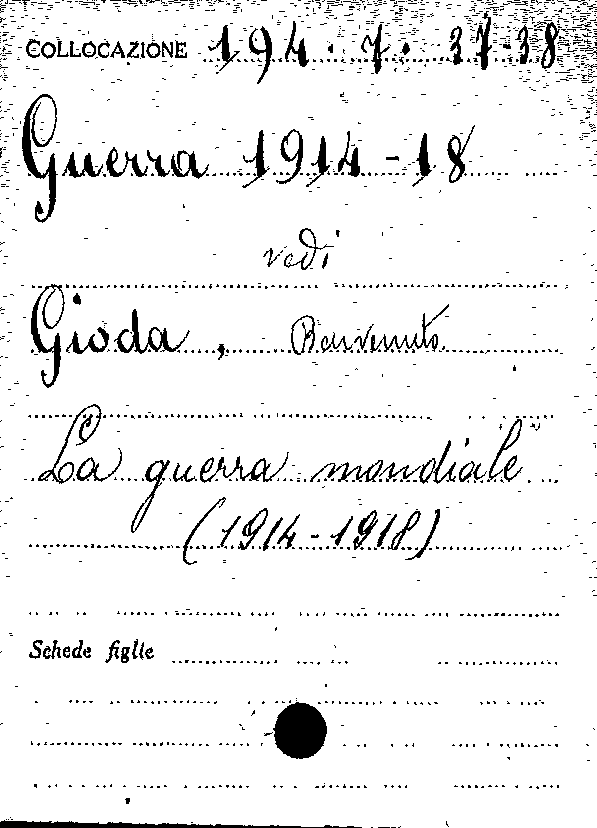 COLLOCAZIONE 194.7.37-38
Guerra 1914-18
vedi
Gioda, Benvenuto
La guerra mondiale
(1914-1918)
Schede figlie